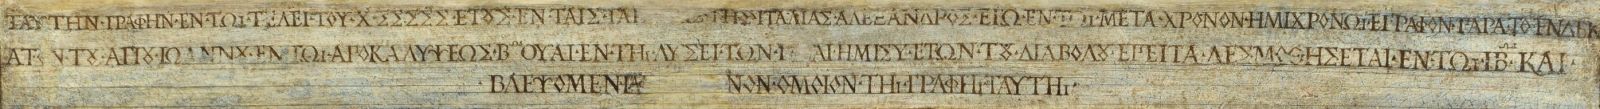 ΤΑΥΤΗΝ·ΓΡΑΦΗΝ·ΕΝ·ΤΩΙ·ΤΕΛΕΙ·ΤΟΥ·Χ·ΣΣΣΣΣ·ΕΤΟΣ·ΕΝ·ΤΑΙΣ· ΤΗΣ·ΙΤΑΛΙΑΣ·ΑΛΕΞΑΝΔΡΟΣ·ΕΓΩ·ΕΝ·ΤΩΙ·ΜΕΤΑ·ΧΡΟΝΟΝ·ΗΜΙΧΡΟΝΩι·ΕΓΡΑΦΟΝ·ΠΑΡΑ·ΤΟ·ΕΝΔΕΚ
ΑΤΟΝ·ΤȢ·ΑΓΙΟΥ·ΙΩΑΝΝȢ·ΕΝ·ΤΩι·ΑΠΟΚΑΛΥΨΕΩΣ·Βωι·ΟΥΑΙ·ΕΝ·ΤΗι·ΛΥΣΕΙ·ΤΩΝ·Γ·ΚΑΙ·ΗΜΙΣΥ·ΕΤΩΝ·ΤȢ·ΔΙΑΒΟΛȢ·ΕΠΕΙΤΑ·ΔΕΣΜΩΘΗΣΕΤΑΙ·ΕΝ·ΤΩι·ΙΒωι·ΚΑΙ·
·ΒΛΕΨΟΜΕΝ· ΝΟΝ·ΟΜΟΙΟΝ·ΤΗι·ΓΡΑΦΗι·ΤΑΥΤΗι·